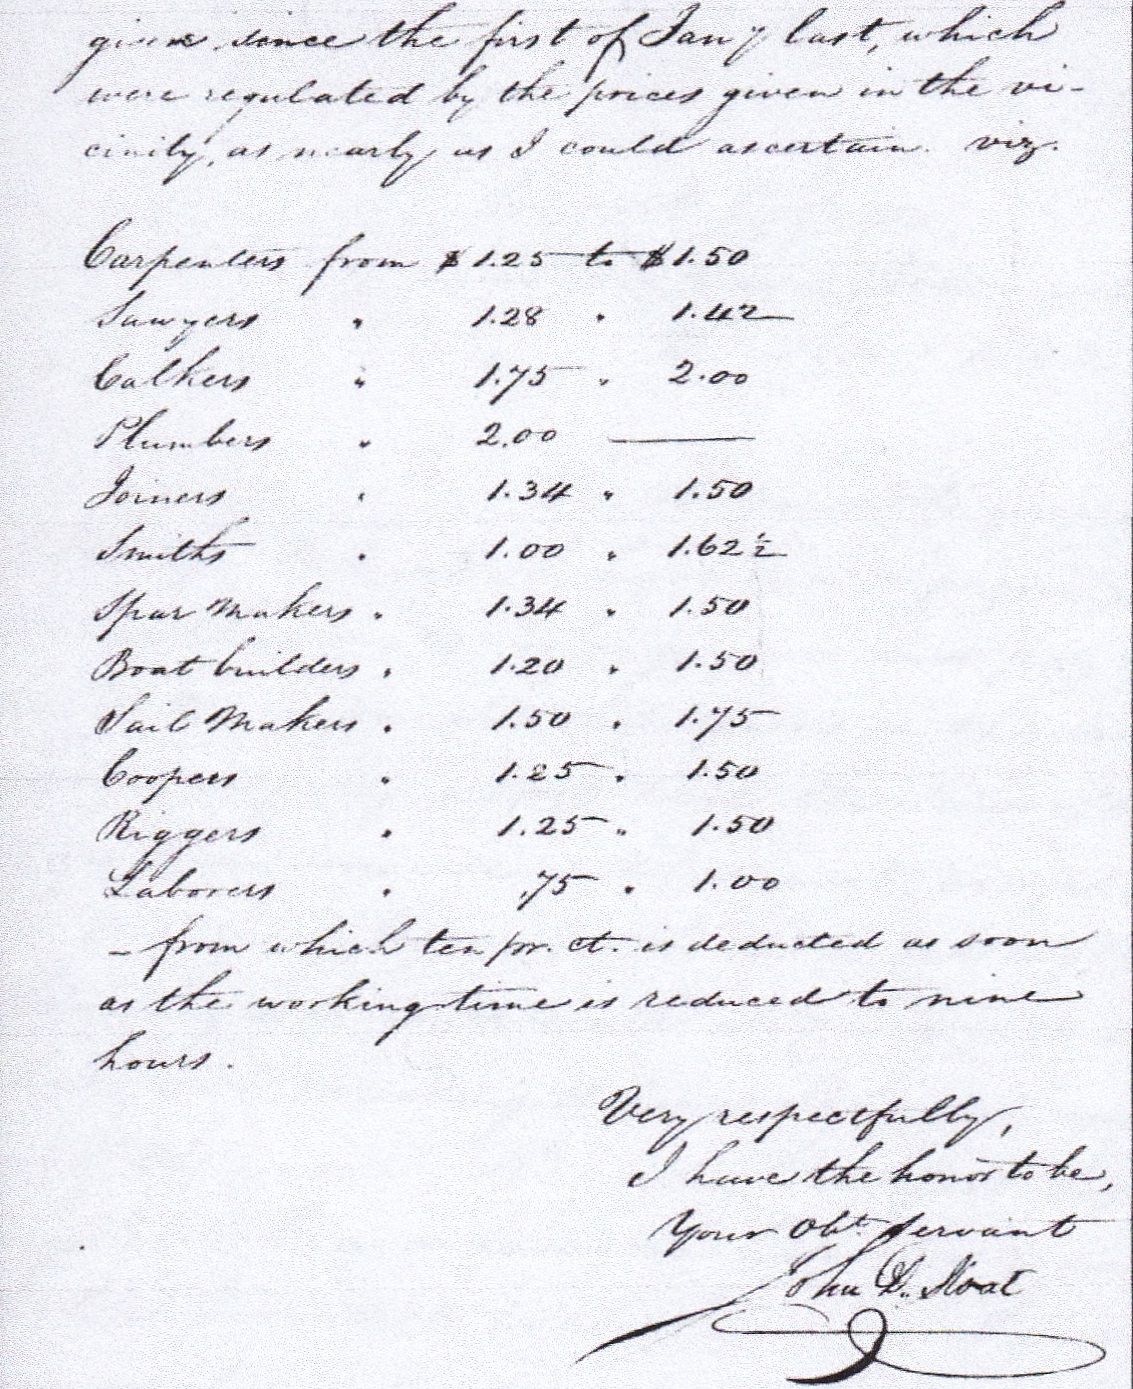 given since the first of Jany last, which
were regulated by the prices given in the vi-
cinity, as nearly as I could ascertain. viz.
Carpenters from $1.25 to $1.50
Sawyers " 1.28 " 1.42
Calkers " 1.75 " 2.00
Plumbers " 2.00 ———
Joiners " 1.34 " 1.50
Smiths " 1.00 " 1.62½
Spar Makers " 1.34 " 1.50
Boat builders " 1.20 " 1.50
Sail Makers " 1.50 " 1.75
Coopers " 1.25 " 1.50
Riggers " 1.25 " 1.50
Laborers " .75 " 1.00
– from which ten pr. ct. is deducted as soon
as the working time is reduced to nine
hours.
Very respectfully,
I have the honor to be,
Your Obt. Servant
John D. Sloat